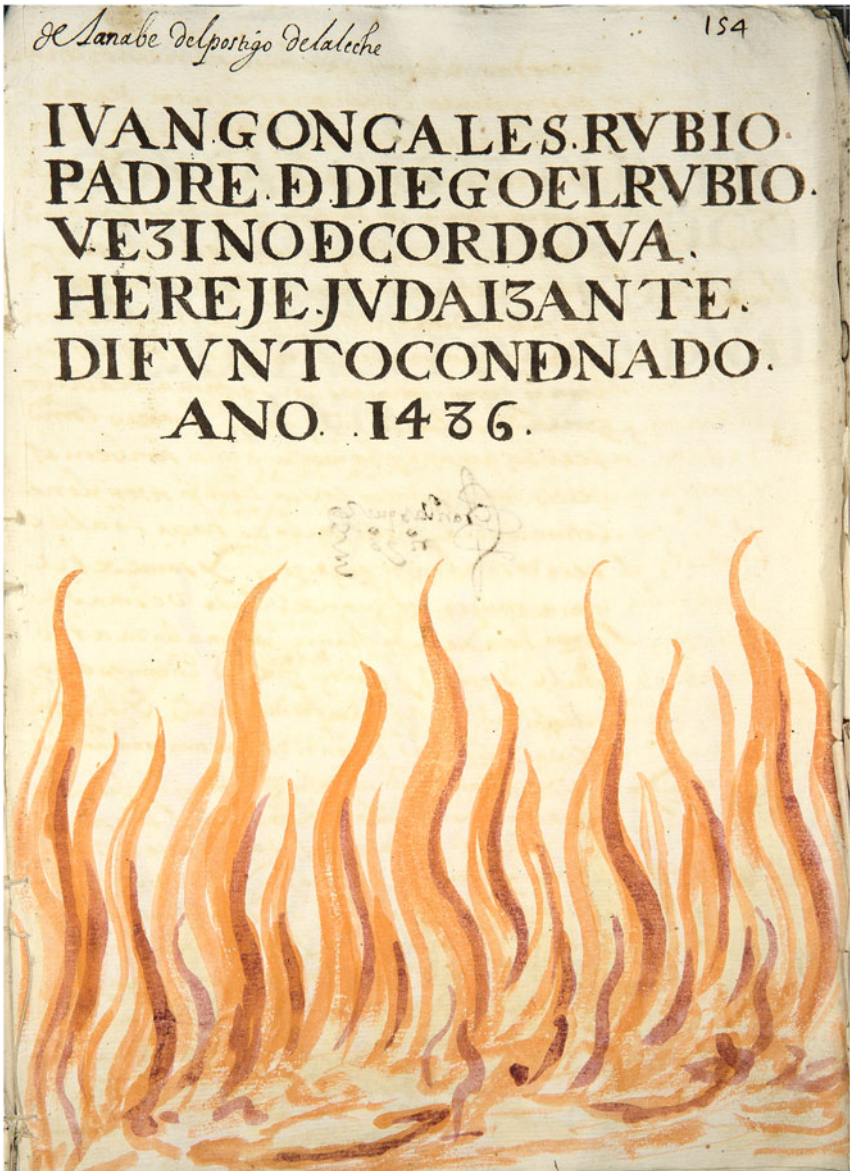 de Lanabe del postigo de la leche
154
IVAN.GONCALES.RVBIO.
PADRE.ĐDIEGOELRVBIO.
VEƷINOĐCORDOVA.
HEREJE.JVDAIƷANTE.
DIFVNTOCONĐNADO.
ANO. .1486.